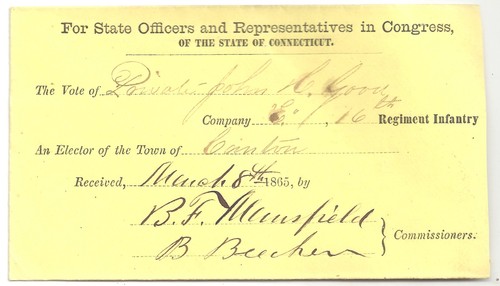 For State Officers and Representatives in Congress,
OF THE STATE OF CONNECTICUT.
The Vote of Private John H.
Company "E", 16th Regiment Infantry
An Elector of the Town of Canton
Received, March 8th 1865, by
B. F. Mansfield
B Beecher
Commissioners.